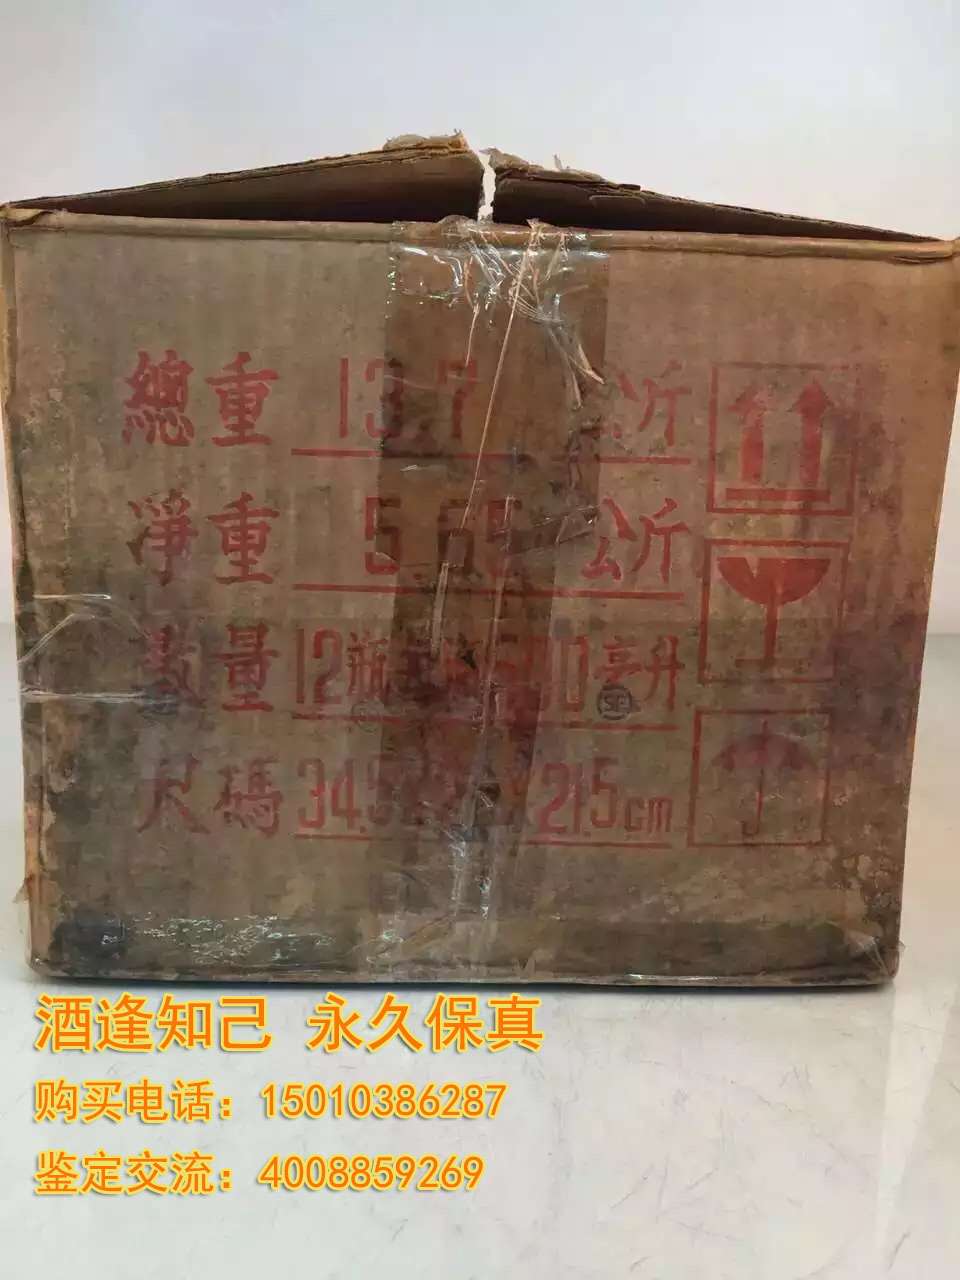 總重 13.7 公斤
淨重 5.65 公斤
數量 12瓶 500毫升
尺碼 34.5 21.5cm
酒逢知己 永久保真
购买电话：15010386287
鉴定交流：4008859269